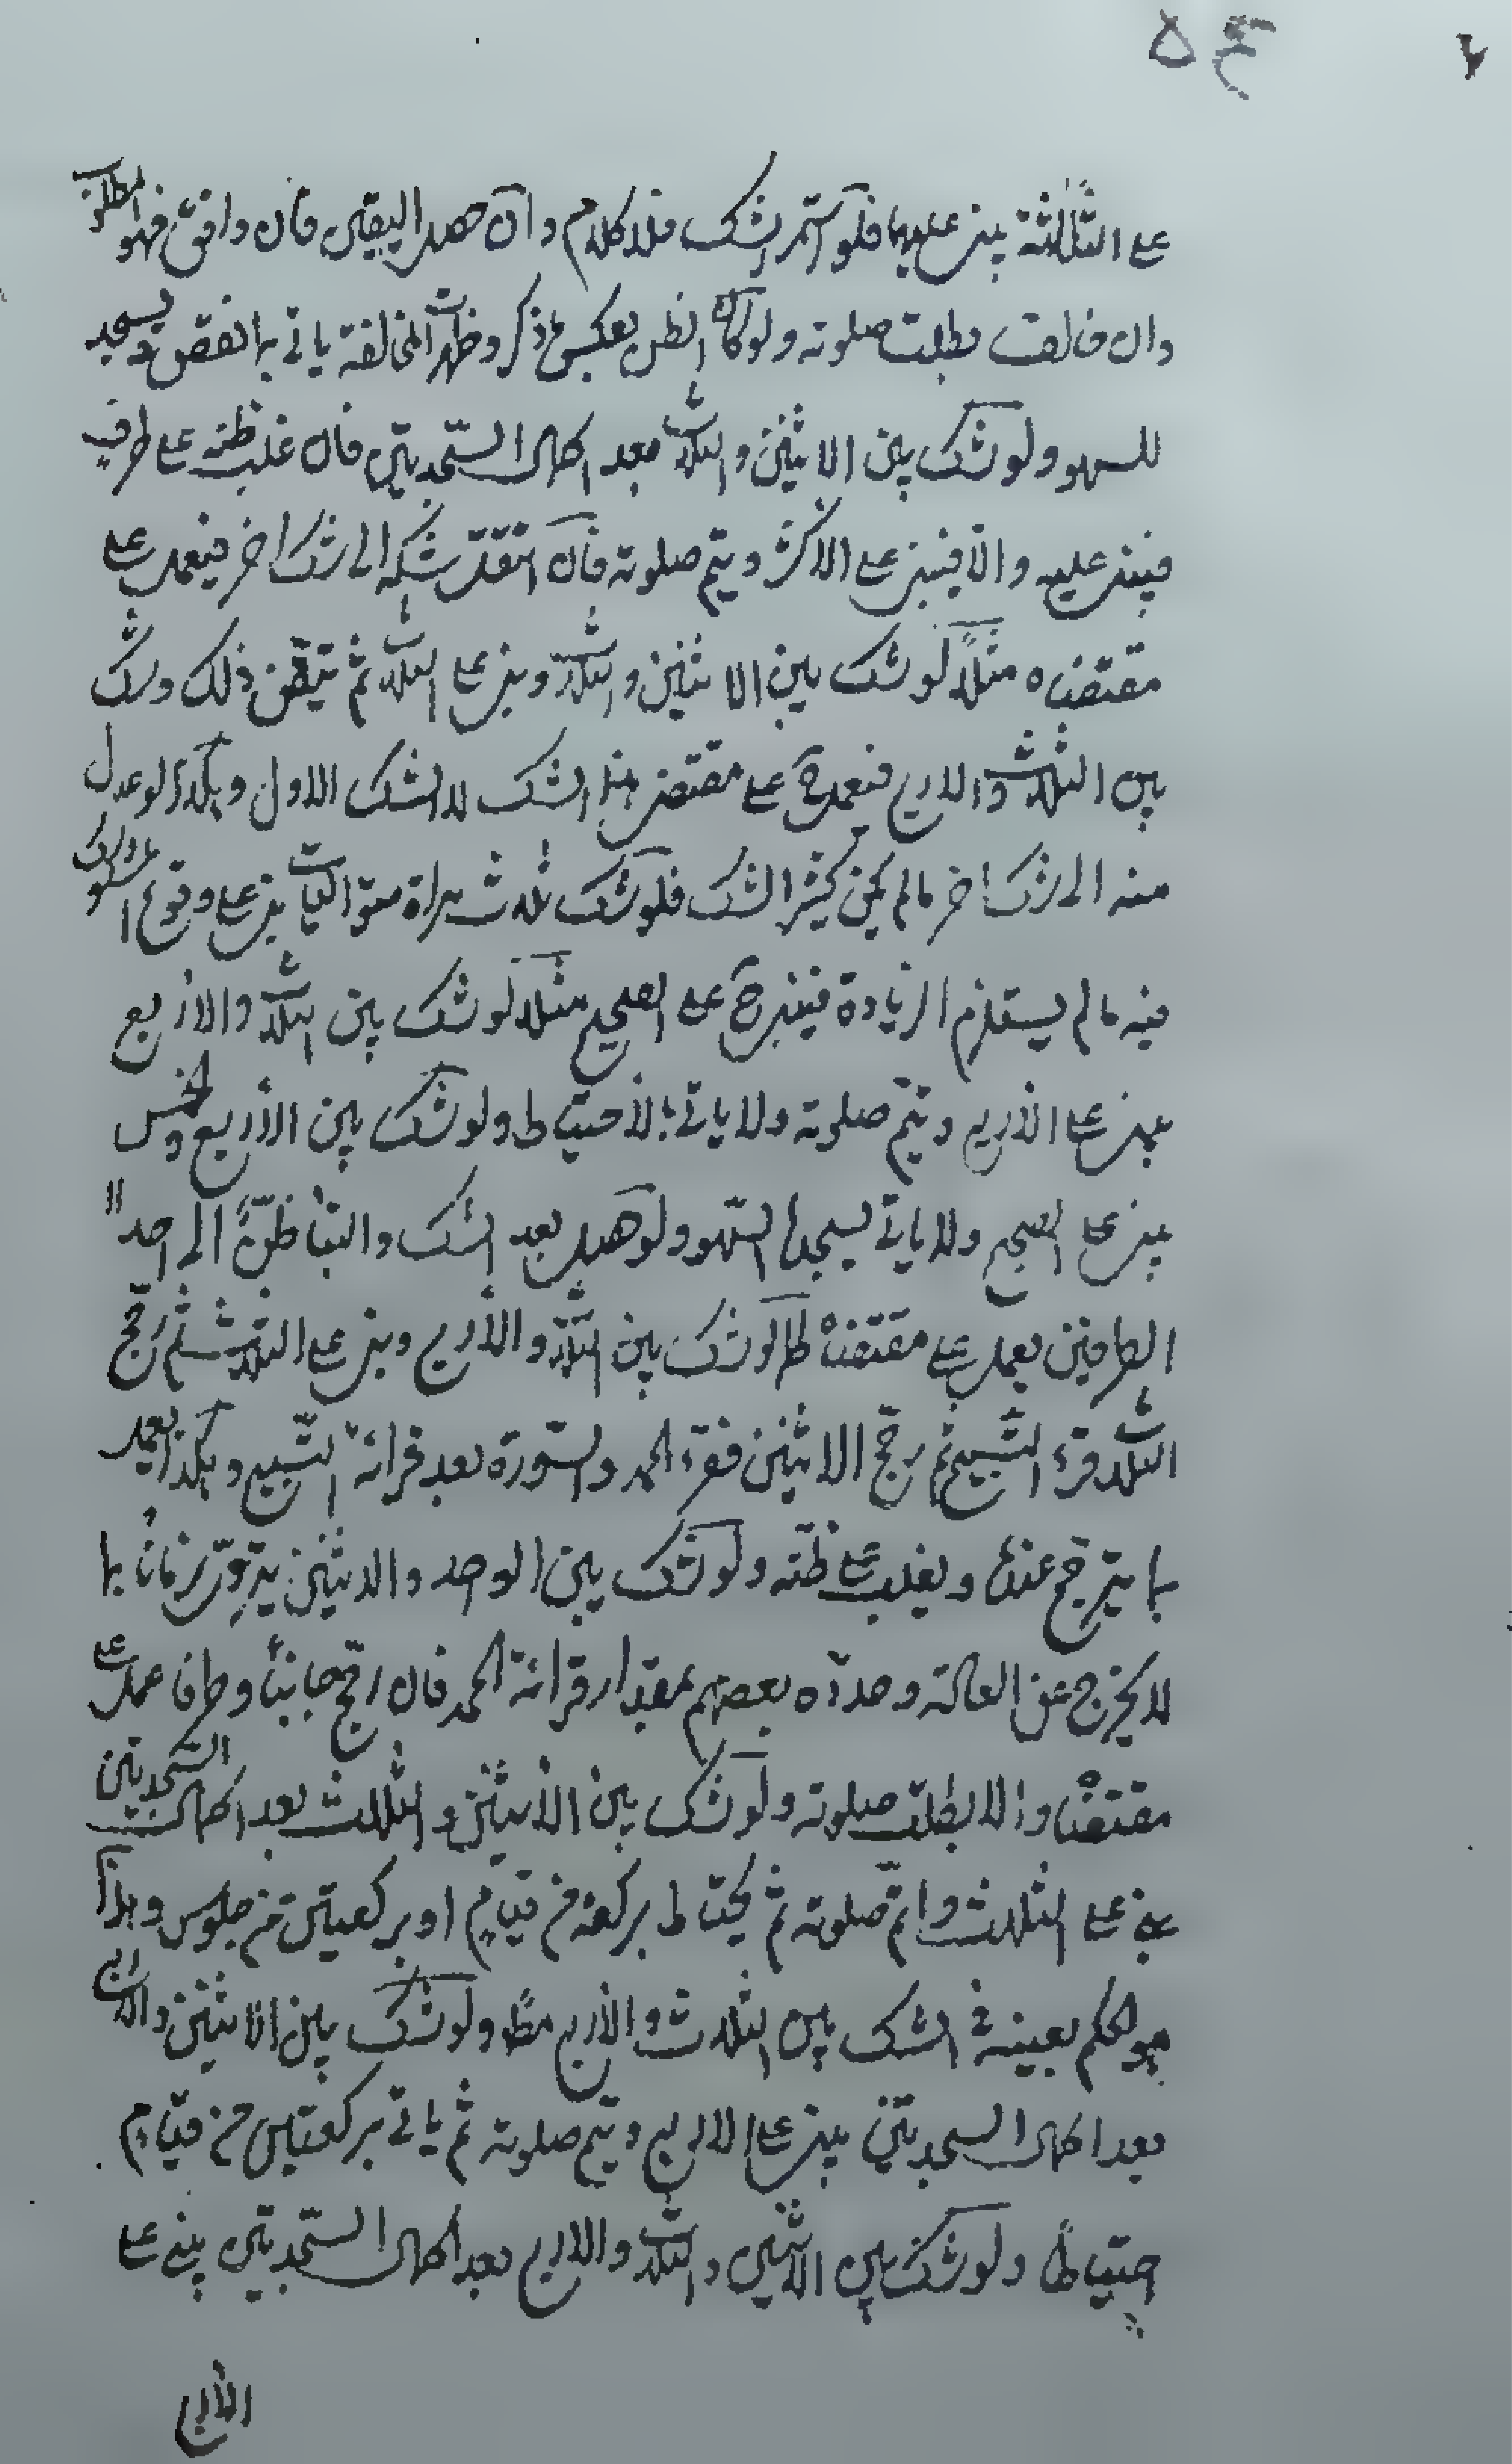 على الثالثة يبنى عليها فلو استمر الشك فلا كلام وان حصل اليقين فان وافق فهو المطلوب
وان خالف بطلت صلوته ولو كان الظن بعكس ما ذكر وظهرت المخالفة ياتى بما نقص ويسجد
للسهو ولو شك بين الاثنين والثلاث بعد اكمال السجدتين فان غلب ظنه على طرف
فيبنى عليه والا فيبنى على الاكثر ويتم صلوته فان انتقل شكه الى شك اخر فيعمل على
مقتضاه مثلا لو شك بين الاثنين والثلاث وبنى على الثلاث ثم تيقن ذلك وشك
بين الثلاث والاربع فيعمل ح على مقتضى هذا الشك لا الشك الاول وهكذا لو عدل
منه الى شك اخر ما لم يكن كثير الشك فلو شك ثلاث مراة متواليات بنى على وقوع المشكوك
فيه ما لم يستلزم الزيادة فيبنى ح على الصحيح مثلا لو شك بين الثلاث والاربع
يبنى على الأربع ويتم صلوته ولا ياتى بالأحتياط ولو شك بين الأربع والخمس
يبنى على الصحيح ولا ياتى بسجدتا السهو ولو حصل بعد الشك والبناء ظن الى احد
الطرفين يعمل على مقتضاه كما لو شك بين الثلاث والأربع وبنى على الثلاث ثم رجح
الثلاث قرء التسبيح ثم رجح الاثنين فقرء الحمد والسورة بعد قرائة التسبيح وهكذا يعمل
بما يترجح عنده ويغلب على ظنه ولو شك بين الواحد والاثنين يتروى زمانا بما
لا يخرج عن العادة وحدده بعضهم بمقدار قرائة الحمد فان رجح جانبا وطرفا عمل على
مقتضاه والا بطلت صلوته ولو شك بين الأثنين والثلاث بعد اكمال السجدتين
بنى على الثلاث واتم صلوته ثم يحتاط بركعة من قيام او بركعتين من جلوس وهذا
هو الحكم بعينه فى الشك بين الثلاث والأربع مط ولو شك بين الاثنين والاربع
بعد اكمال السجدتين يبنى على الاربع ويتم صلوته ثم ياتى بركعتين من قيام
احتياطا ولو شك بين الاثنين والثلاث والاربع بعد اكمال السجدتين يبنى على
الأربع